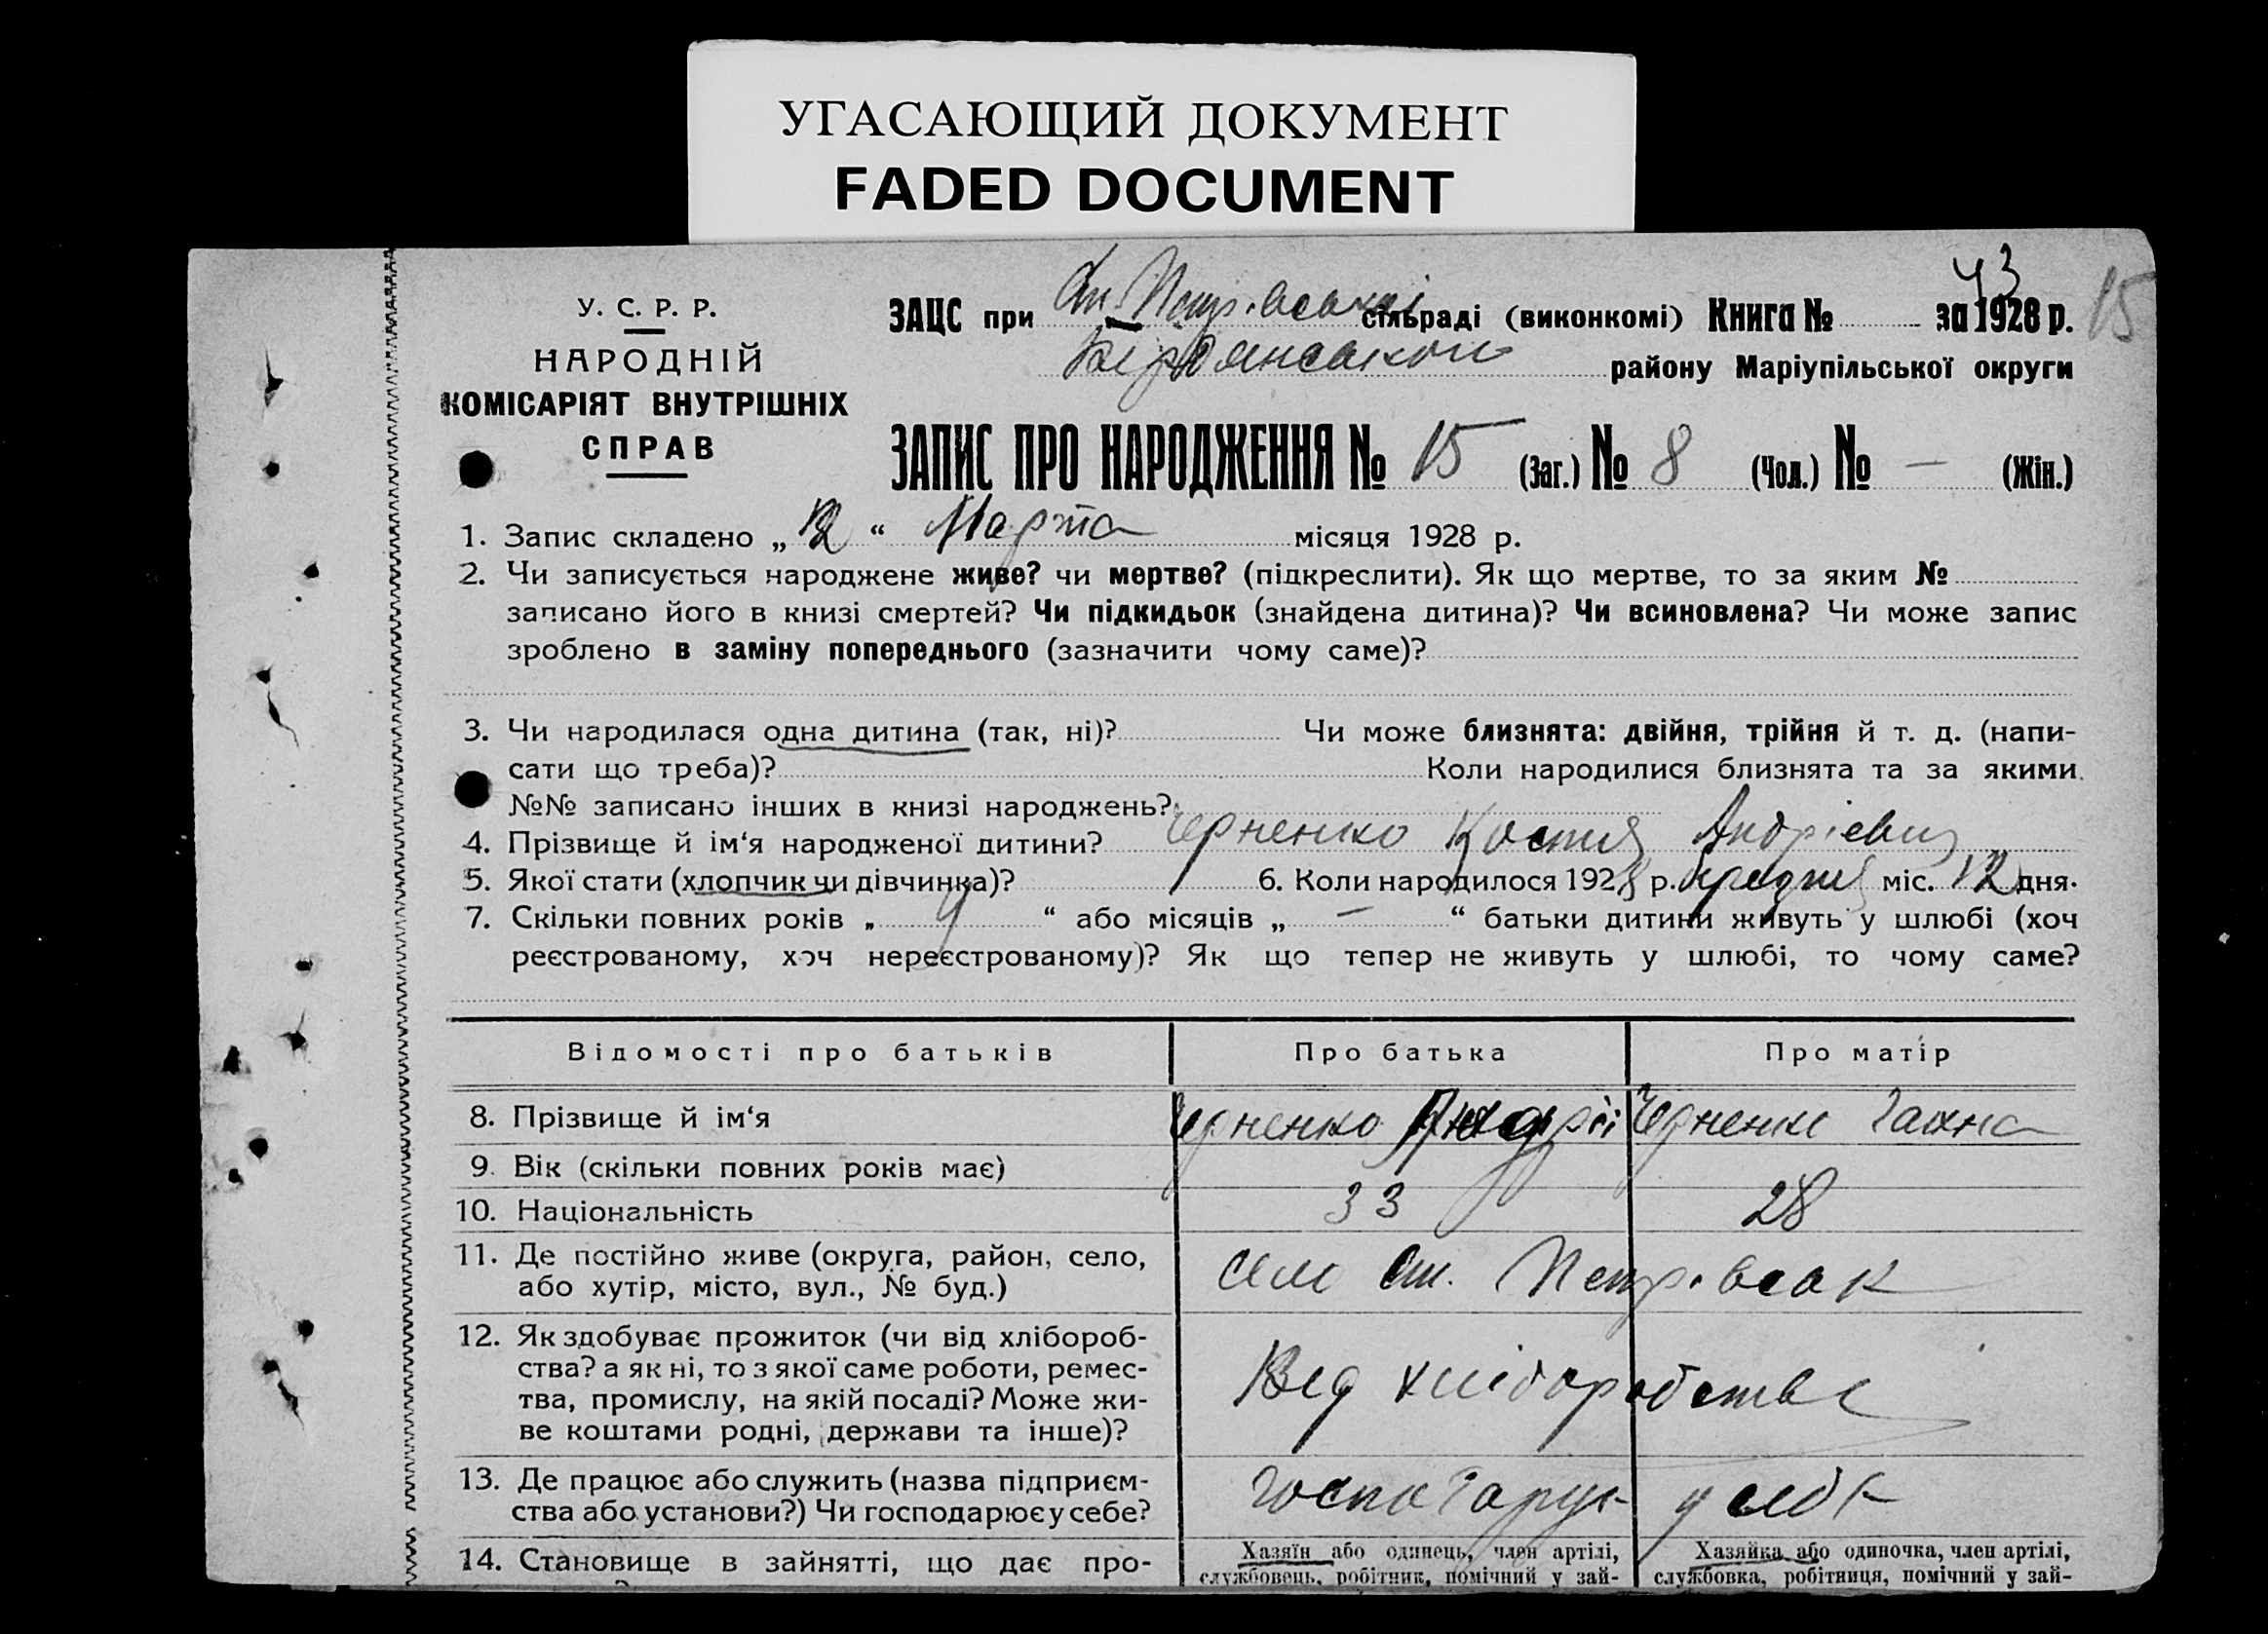 УГАСАЮЩИЙ ДОКУМЕНТ
FADED DOCUMENT
43
15
У. С. Р. Р.
НАРОДНІЙ
КОМІСАРІЯТ ВНУТРІШНІХ
СПРАВ
ЗАЦС при Ст. Петр. сільраді (виконкомі) Книга № за 1928 р.
району Маріупільської округи
ЗАПИС ПРО НАРОДЖЕННЯ № 15 (Заг.) № 8 (Чол.) № — (Жін.)
1. Запис складено „ 12 “ Марта місяця 1928 р.
2. Чи записується народжене живе? чи мертве? (підкреслити). Як що мертве, то за яким №
записано його в книзі смертей? Чи підкидьок (знайдена дитина)? Чи всиновлена? Чи може запис
зроблено в заміну попереднього (зазначити чому саме)?
3. Чи народилася одна дитина (так, ні)? Чи може близнята: двійня, трійня й т. д. (напи-
сати що треба)? Коли народилися близнята та за якими
№№ записано інших в книзі народжень?
4. Прізвище й ім‘я народженої дитини? Черненко Костя Андрієвич
5. Якої стати (хлопчик чи дівчинка)? 6. Коли народилося 1928 р. міс. 12 дня.
7. Скільки повних років „ “ або місяців „ — “ батьки дитини живуть у шлюбі (хоч
реєстрованому, хоч нереєстрованому)? Як що тепер не живуть у шлюбі, то чому саме?
Відомості про батьків Про батька Про матір
8. Прізвище й ім‘я Черненко Андрій Черненко
9. Вік (скільки повних років має)
10. Національність 33 28
11. Де постійно живе (округа, район, село,
або хутір, місто, вул., № буд.) село Ст. Петр.
12. Як здобуває прожиток (чи від хлібороб-
ства? а як ні, то з якої саме роботи, ремес-
тва, промислу, на якій посаді? Може жи-
ве коштами родні, держави та інше)? Від хліборобства
13. Де працює або служить (назва підприєм-
ства або установи?) Чи господарює у себе? у себе
14. Становище в зайнятті, що дає про-
Хазяїн або одинець, член артілі,
службовець, робітник, помічний у зай-
Хазяйка або одиночка, член артілі,
службовка, робітниця, помічний у зай-